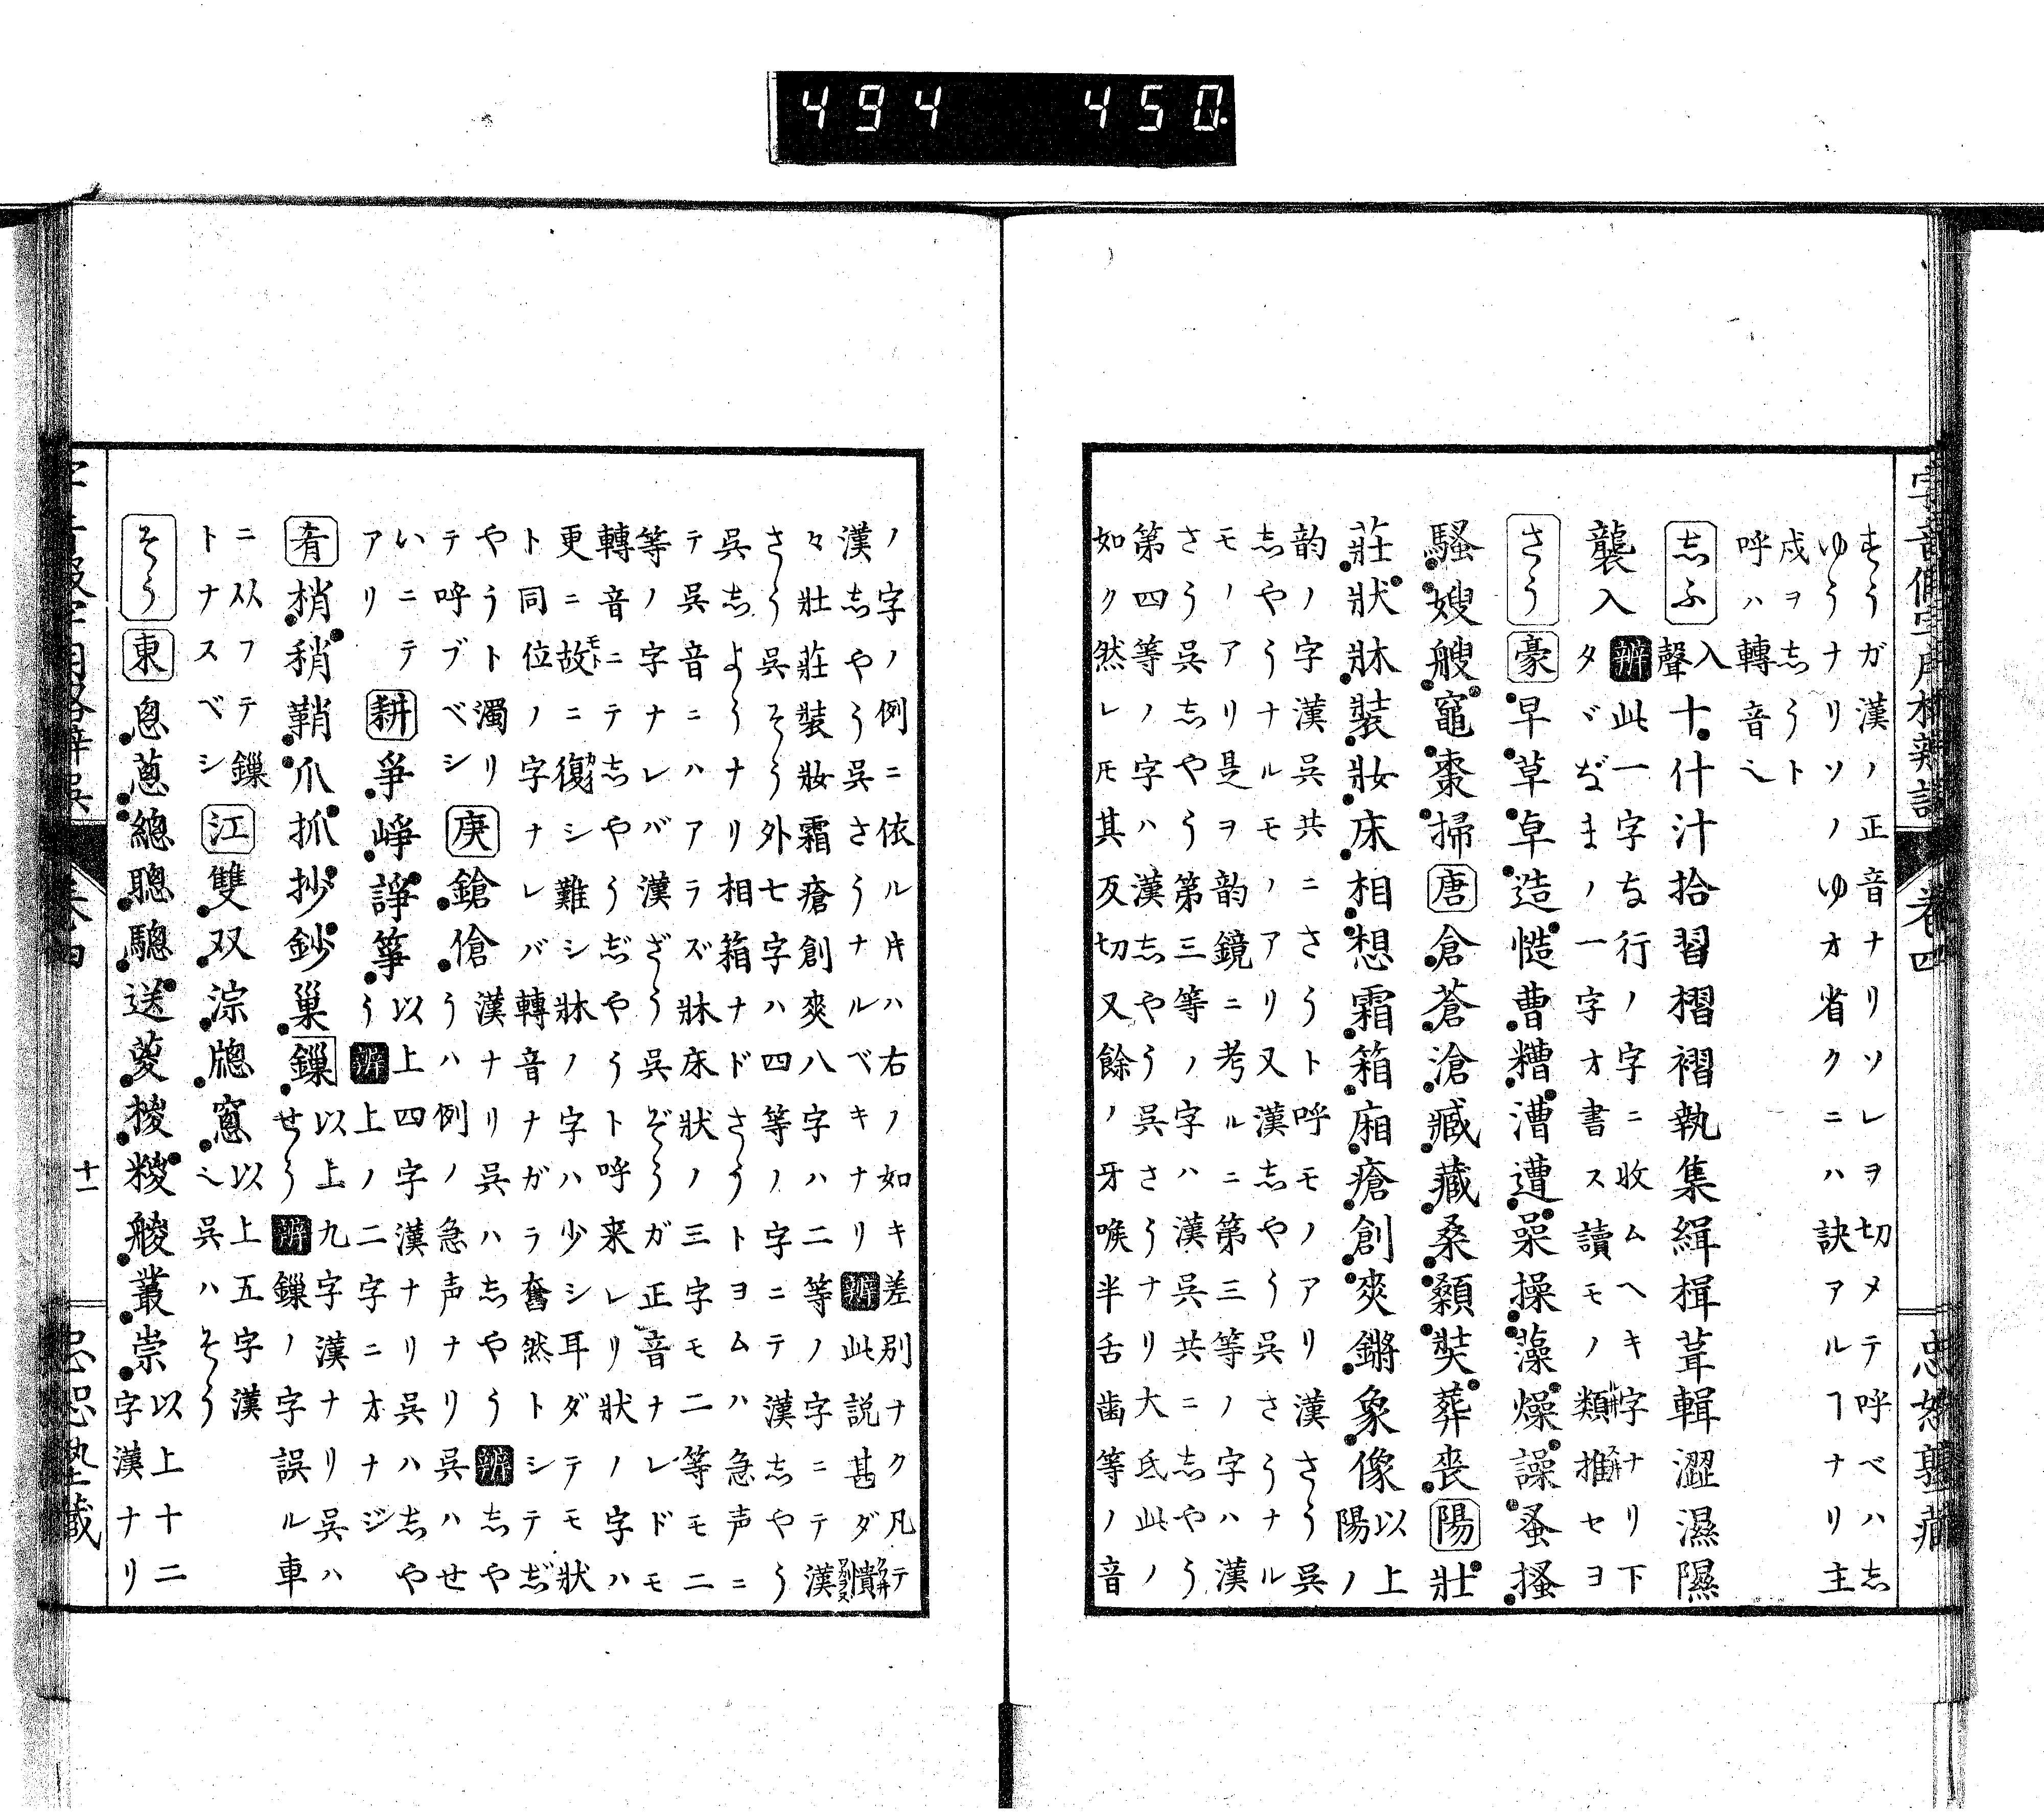 494 450
すうガ漢ノ正音ナリソレヲ切メテ呼ベハ志
ゆうナリソノゆオ省クニハ訣アルヿナリ主
戍ヲ志うト
呼ハ轉音也
志ふ 入聲 十什汁拾習摺褶執集緝楫葺輯澀濕隰
襲入 辨 此一字な行ノ字ニ收ムヘキ字ナリ下
タゞぢまノ一字オ書ス讀モノ類推セヨ
さう 豪 早草皁造慥曹糟漕遭喿操藻燥譟蚤搔
騷嫂艘竈棗掃 唐 倉蒼滄臧藏桑顙奘葬喪 陽 壯
莊狀牀裝妝床相想霜箱廂瘡創爽鏘象像 以上陽ノ
韵ノ字漢呉共ニさうト呼モノアリ漢さう呉
志やうナルモノアリ又漢志やう呉さうナル
モノアリ是ヲ韵鏡ニ考ルニ第三等ノ字ハ漢
さう呉志やう第三等ノ字ハ漢呉共ニ志やう
第四等ノ字ハ漢志やう呉さうナリ大氐此ノ
如ク然レ𪜈其反切又餘ノ牙喉半舌齒等ノ音
ノ字ノ例ニ依ル片ハ右ノ如キ差別ナク凡テ
漢志やう呉さうナルベキナリ 辨 此説甚ダ憒
々壯莊裝妝霜瘡創爽八字ハ二等ノ字ニテ漢
さう呉そう外七字ハ四等ノ字ニテ漢志やう
呉志ようナリ相箱ナドさうトヨムハ急声ニ
テ呉音ニハアラズ牀床狀ノ三字モ二等モ二
等ノ字ナレバ漢ざう呉ぞうガ正音ナレドモ
轉音ニテ志やうぢやうト呼来レリ狀ノ字ハ
更ニ故ニ復シ難シ牀ノ字ハ少シ耳ダテモ狀
ト同位ノ字ナレバ轉音ナガラ奮然トシテぢ
やうト濁リ 庚 鎗傖 漢ナリ呉ハ志やう 辨 志や
テ呼ブベシ うハ例ノ急声ナリ呉ハせ
いニテ 耕 爭崢諍箏 以上四字漢ナリ呉ハ志や
アリ う 辨 上ノ二字ニオナジ
肴 梢稍鞘爪抓抄鈔巢鏁 以上九字漢ナリ呉ハ
せう 辨 鏁ノ字誤ル車
ニ从フテ鏁 江 雙双淙牕窻 以上五字漢
トナスベシ 也呉ハそう
そう 東 怱蔥總聰驄送葼椶糉艐叢崇 以上十二
字漢ナリ
卷四
十一
忠恕塾藏